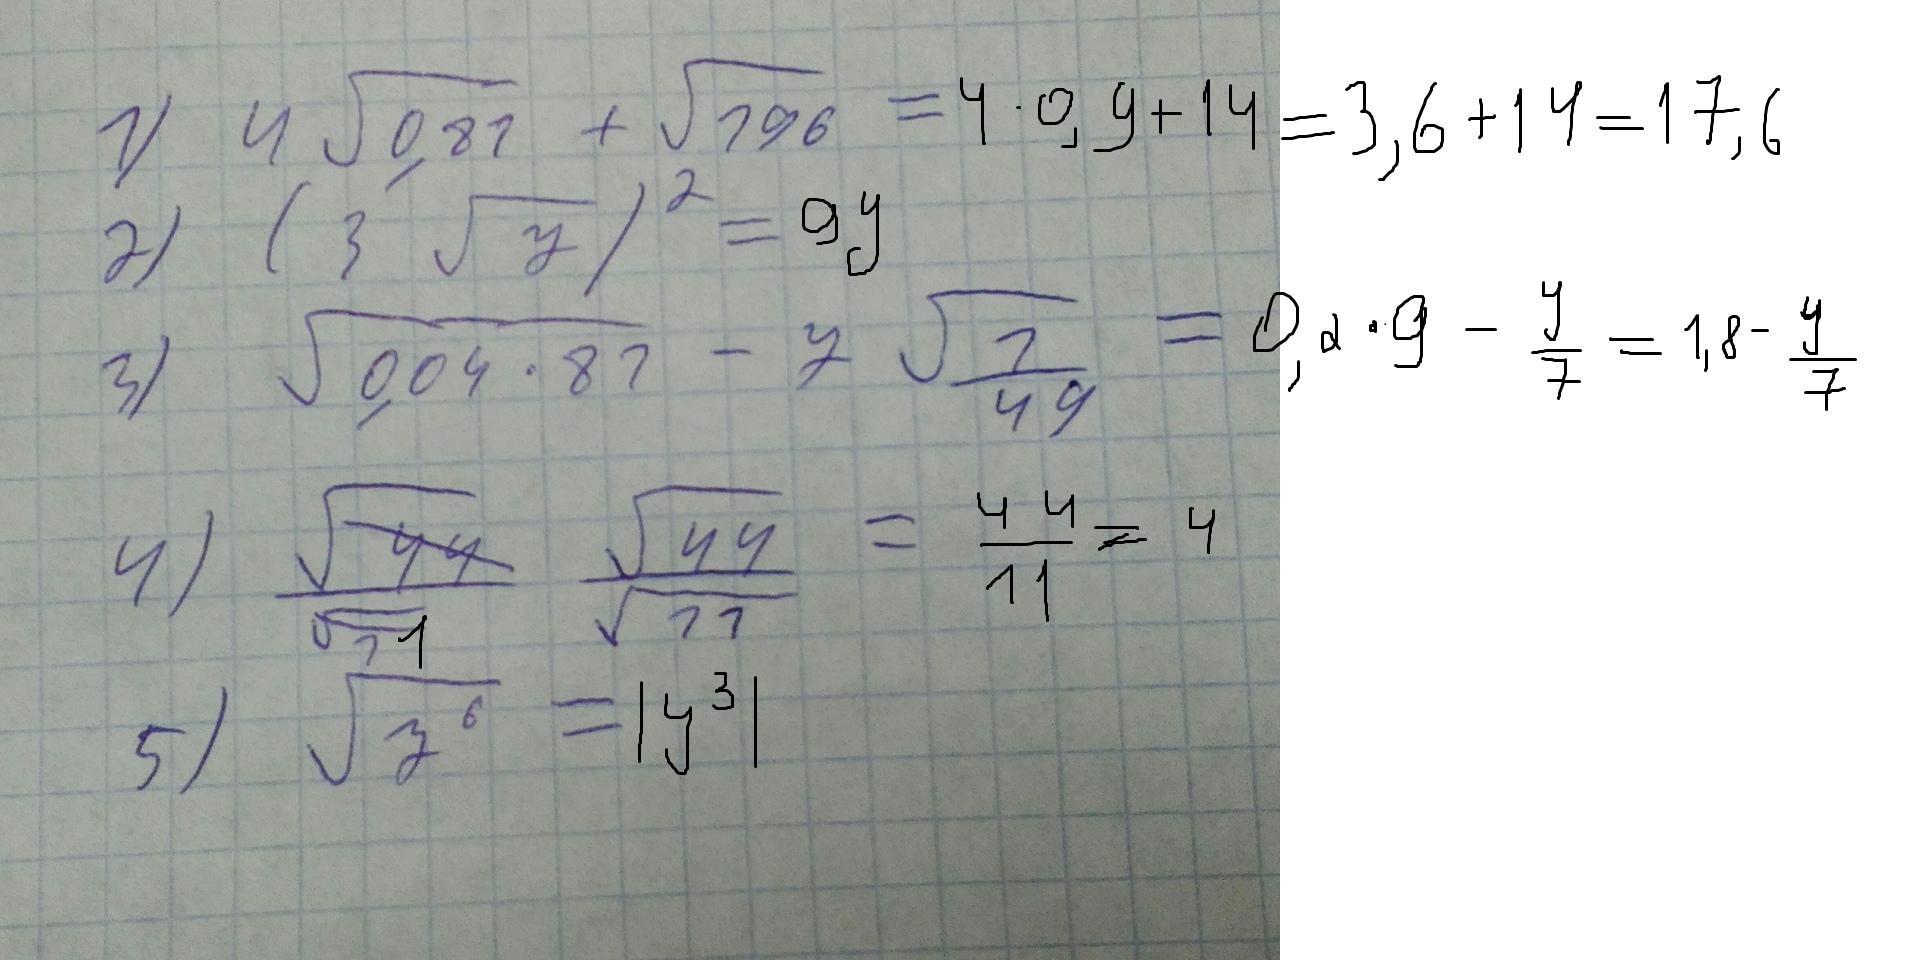 1) 4 √0,81 + √196 = 4 · 0,9 + 14 = 3,6 + 14 = 17,6
2) (3 √y)² = 9y
3) √0,04 · 81 - y √1/49 = 0,2 · 9 - y/7 = 1,8 - y/7
4) √44/√11 √44/√11 = 44/11 = 4
5) √y⁶ = |y³|